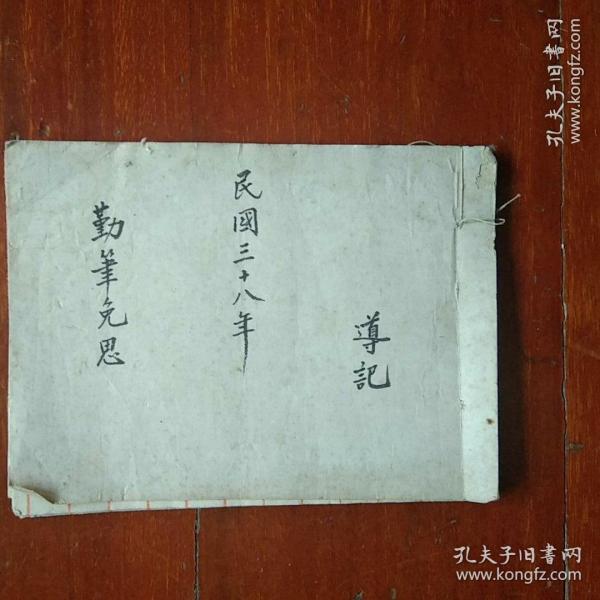 導記
民國三十八年
勤筆免思
孔夫子旧书网
www.kongfz.com
孔夫子旧书网
www.kongfz.com